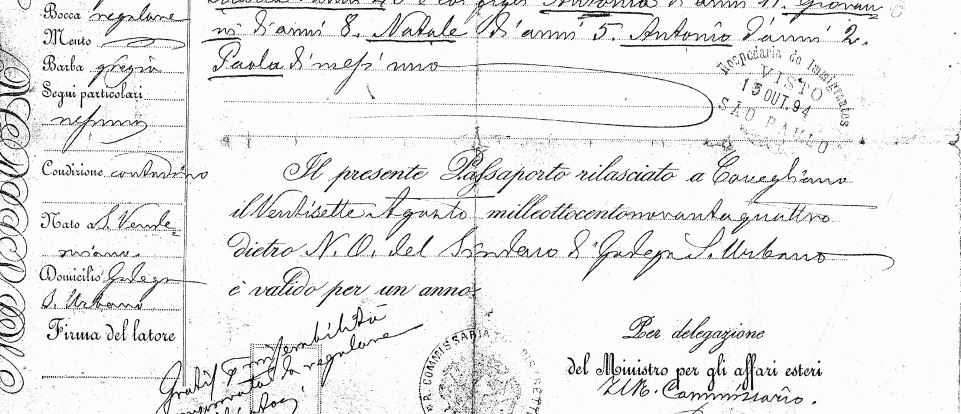 Bocca regolare
Mento
Barba grigia
Segni particolari
nessuno
Condizione contadino
Nato a S. Vende-
miano
Domicilio Godega
S. Urbano
Firma del latore
Antonia d'anni 11. Giovan-
ni d'anni 8. Natale d'anni 5. Antonio d'anni 2.
Paola di mesi uno
Hospedaria de Immigrantes
VISTO
13 OUT. 94
SÃO PAULO
Il presente Passaporto rilasciato a Conegliano
il Ventisette Agosto milleottocentonovantaquattro
dietro N. O. del Sindaco di Godega S. Urbano
è valido per un anno.
Gratis miserabilità
la regolare
COMMISSARIA
Per delegazione
del Ministro per gli affari esteri
Commissario.